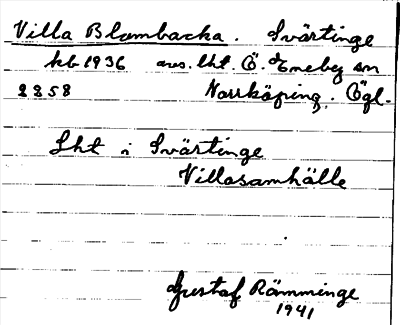 Villa Blombacka. Svärtinge
kb 1936 avs. lht. Ö. Eneby sn
2258 Norrköping. Ögl.
Lht i Svärtinge
Villasamhälle
Gustaf Rämminge
1941